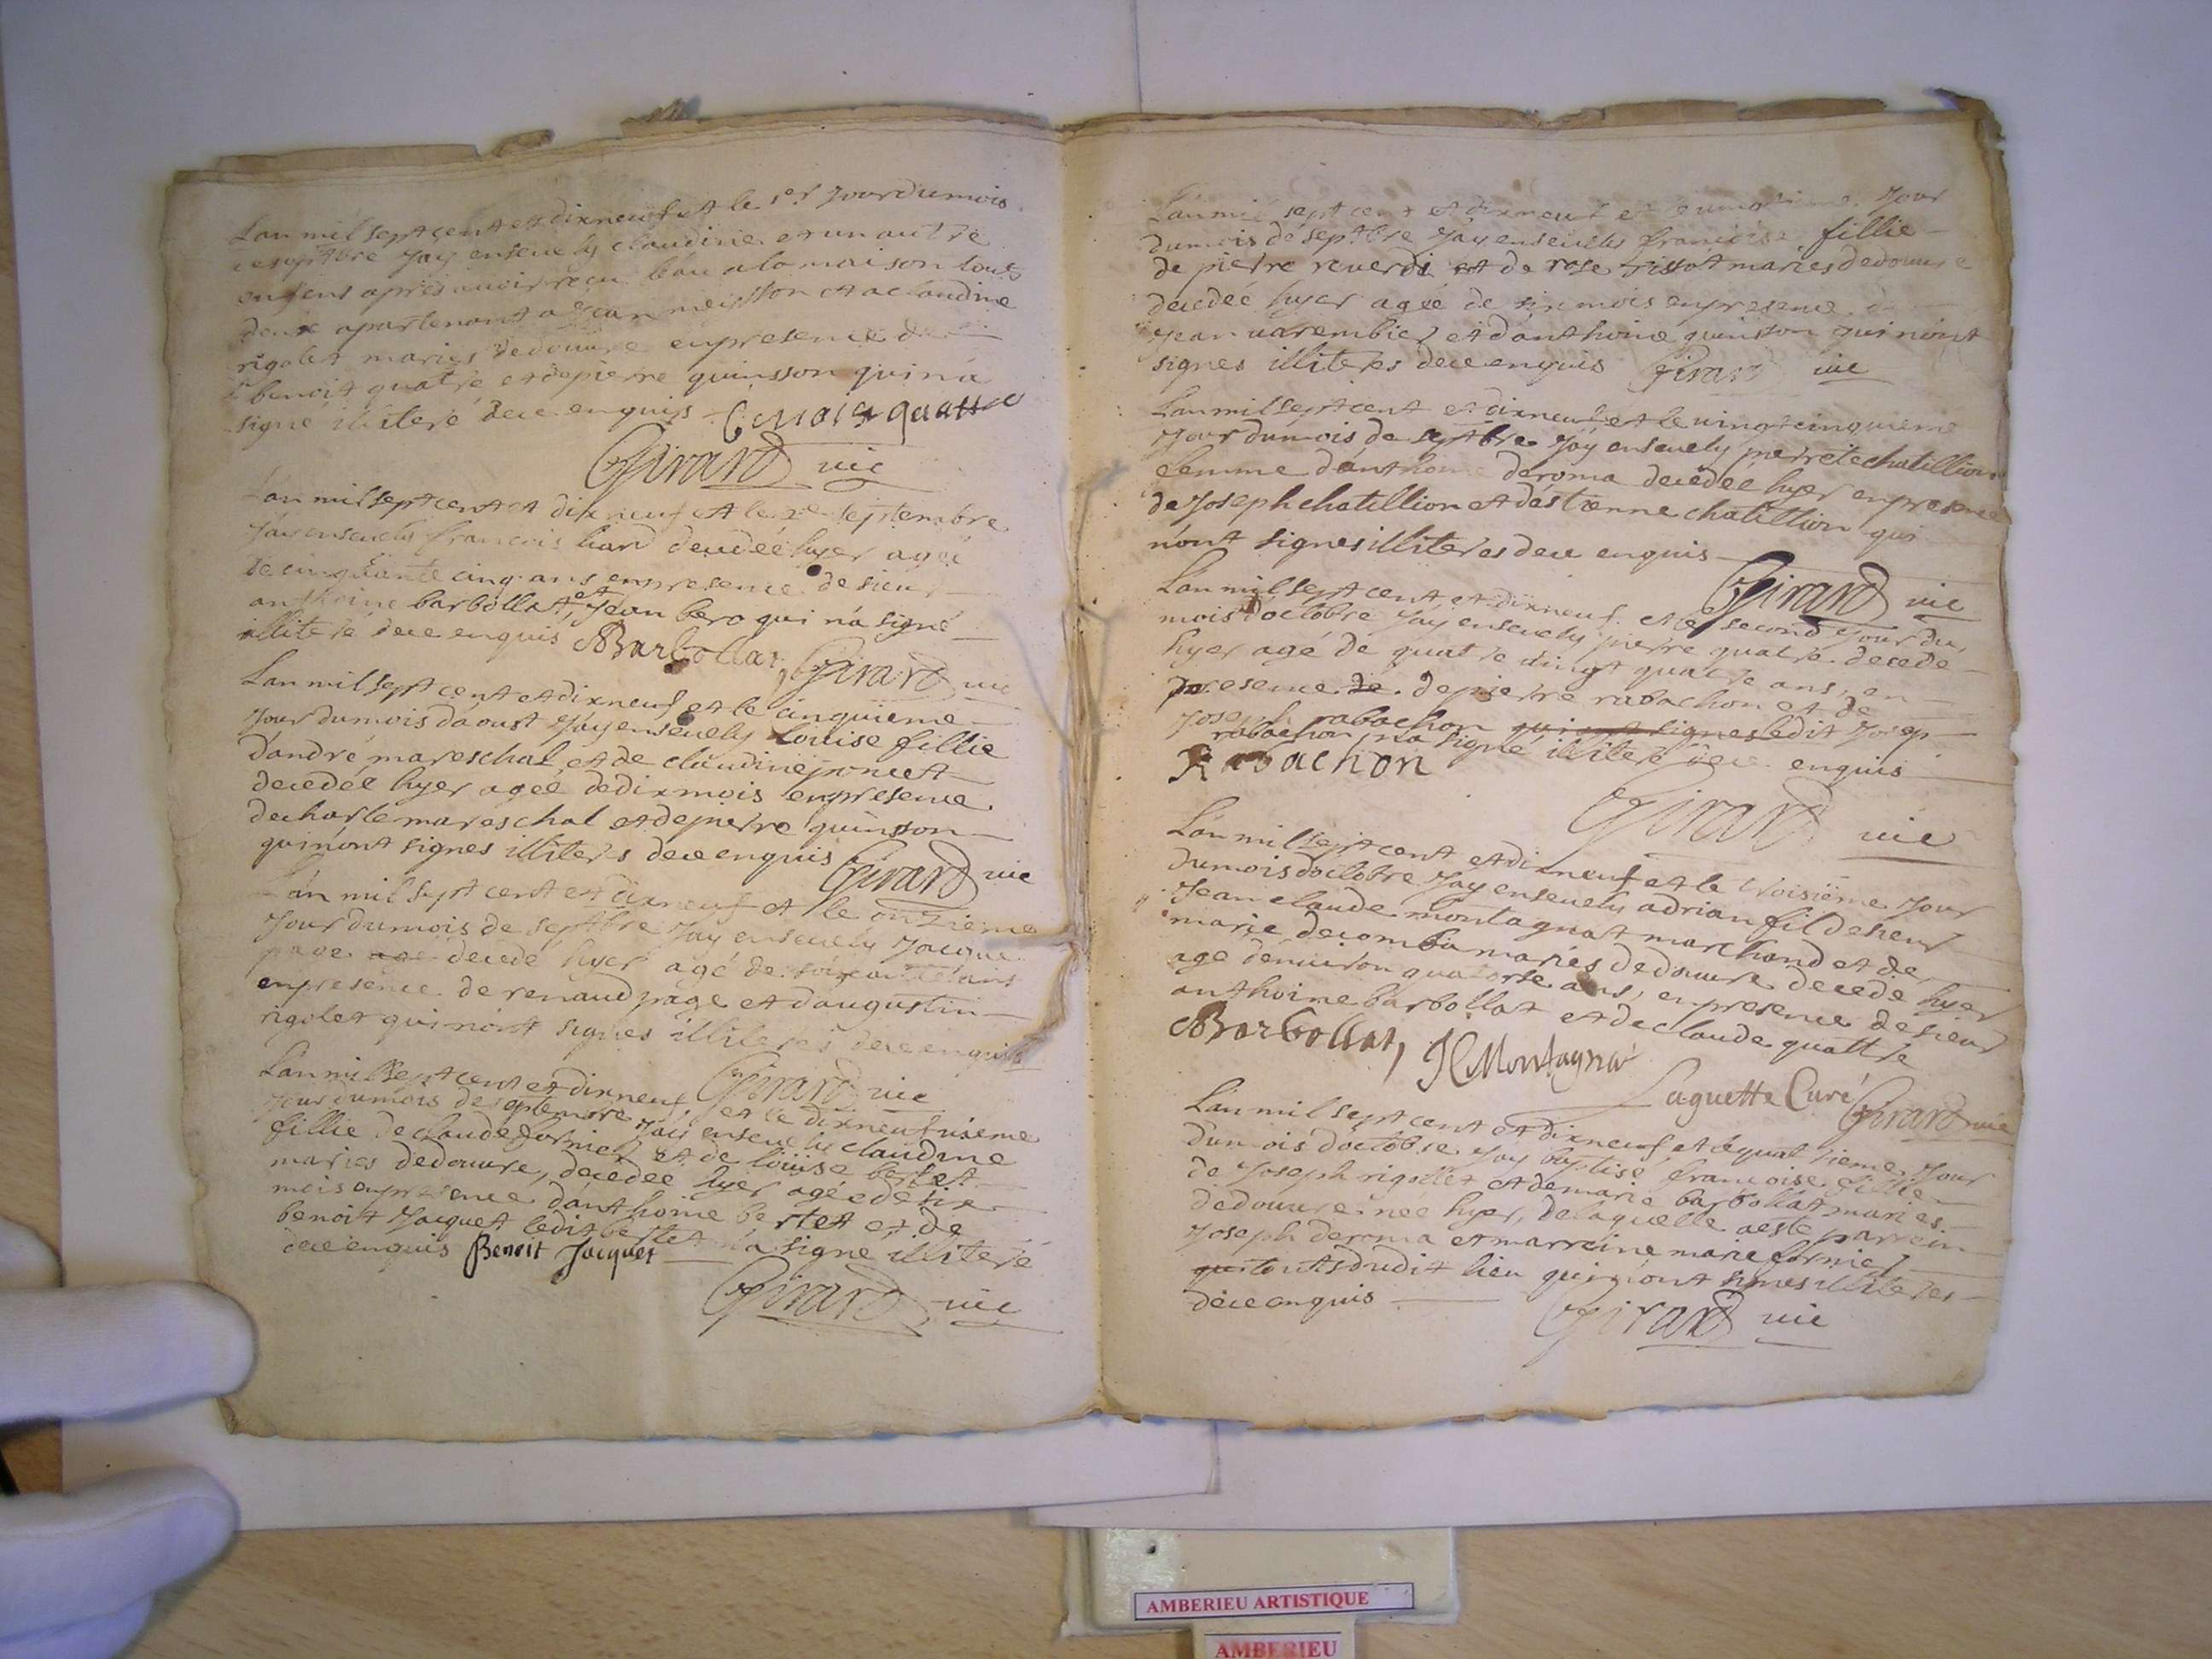 Lan mil sept cent et dixneuf et le 1er Jour du mois
de septbre Jay ensevely claudine et un autre
enfens apres avoir reçu leau a la maison tout
deux apartenant a Jean meisson et a claudine
rigolet maries dedouvre enpresence de
benoit quatre et de pierre quinsson qui na
signé illiteré dece enquis benoist quattre
Girard vic
Lan mil sept cent et dix neuf et le 2e septembre
Jay ensevely francois decedée hyer agée
de cinquante cinq ans enpresence de sieur
anthoine barbollat, et Jean bero qui na signé
illiteré dece enquis ABarbollat, Girard vic
Lan mil sept cent et dixneuf et le cinquieme
Jour du mois daoust Jay ensevely Louise fillie
dandré mareschal et de claudine poncet
decedée hyer agée de dix mois enpresence
de charle mareschal et de pierre quinson
qui nont signes illiteres dece enquis Girard vic
Lan mil sept cent et dixneuf et le onzieme
Jour du mois de septbre Jay ensevely Jacque
page decedé hyer agé de soixante ans
enpresence de renaud page et daugustin
rigolet qui nont signes illiteres dece enquis
Girard vic
Lan mil sept cent et dixneuf et le dixneufvieme
Jour du mois de septembre Jay ensevely claudine
fillie de claude fornier et de louise bertet
maries dedouvre, decedée hyer agée de six
mois enpresence danthoine bertet et de
benoit Jacquet ledit bertet na signé illiteré
dece enquis Benoit Jacquet
Girard vic
Lan mil sept cent et dixneuf et le Jour
du mois de septbre Jay ensevely francoise fillie
de pierre reverdi et de rose tissot maries dedouvre
decedée hyer agée de six mois enpresence de
Jean varembier et danthoine quinson qui nont
signes illiteres dece enquis Girard vic
Lan mil sept cent et dixneuf et le vingt cinquieme
Jour du mois de septbre Jay ensevely pierrete chatillion
femme danthoine deroma decedée hyer enpresence
de Joseph chatillion et destienne chatillion qui
nont signes illiteres dece enquis
Girard vic
Lan mil sept cent et dixneuf et le second Jour du
mois doctobre Jay ensevely pierre quatre decede
hyer agé de quatre vingt quatre ans, en
presence de de pierre rabachon et de
Joseph rabachon qui ont signes ledit Josep
rabachon na signé illiteré dece enquis
Rabachon
Girard vic
Lan mil sept cent et dixneuf et le troisième Jour
du mois doctobre Jay ensevely adrian fil desieur
Jean claude montagnat marchand et de
marie decomba maries dedouvre decedé hyer
agé denviron quatorse ans, enpresence desieur
anthoine barbollat et de claude quattre
ABarbollat, JCMontagnat
Laguette Curé Girard vic
Lan mil sept cent et dixneuf et le quatrieme Jour
du mois doctobre Jay baptisé francoise fillie
de Joseph rigollet et de marie barbollat maries
dedouvre née hyer, delaquelle aeste parrein
Joseph deroma et marreine marie fornier
qui touts dudit lieu qui nont signes illiteres
dece enquis
Girard vic
AMBERIEU ARTISTIQUE
AMBERIEU